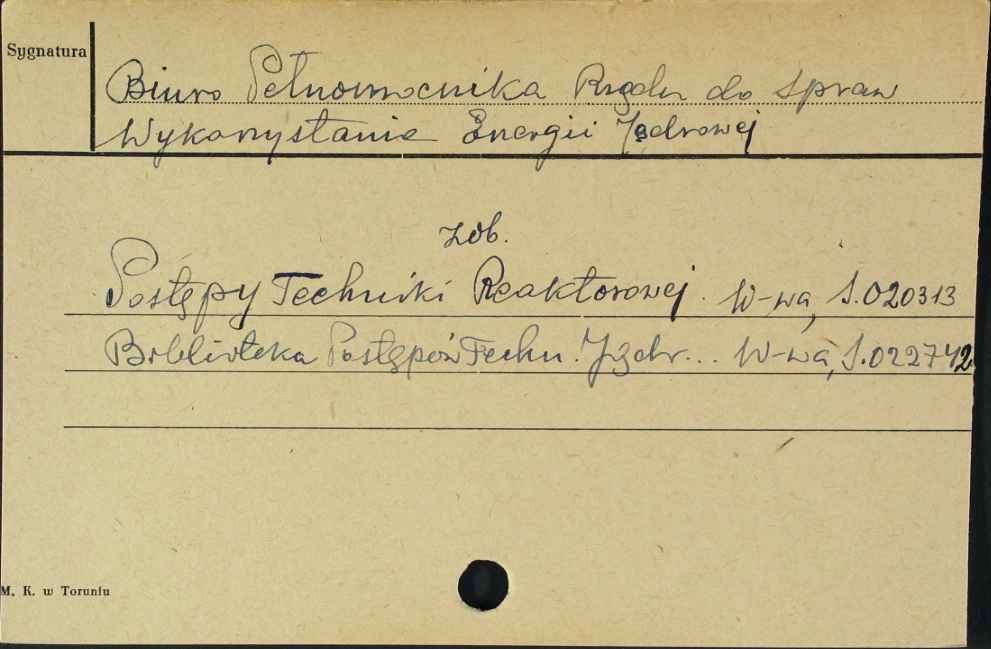 Sygnatura
Biuro Pełnomocnika Rządu do Spraw
Wykorzystania Energii Jądrowej
zob.
Postępy Techniki Reaktorowej. W-wa, S.020313
Biblioteka Postępów Techn. Jądr... W-wa, S.022742
M. K. w Toruniu